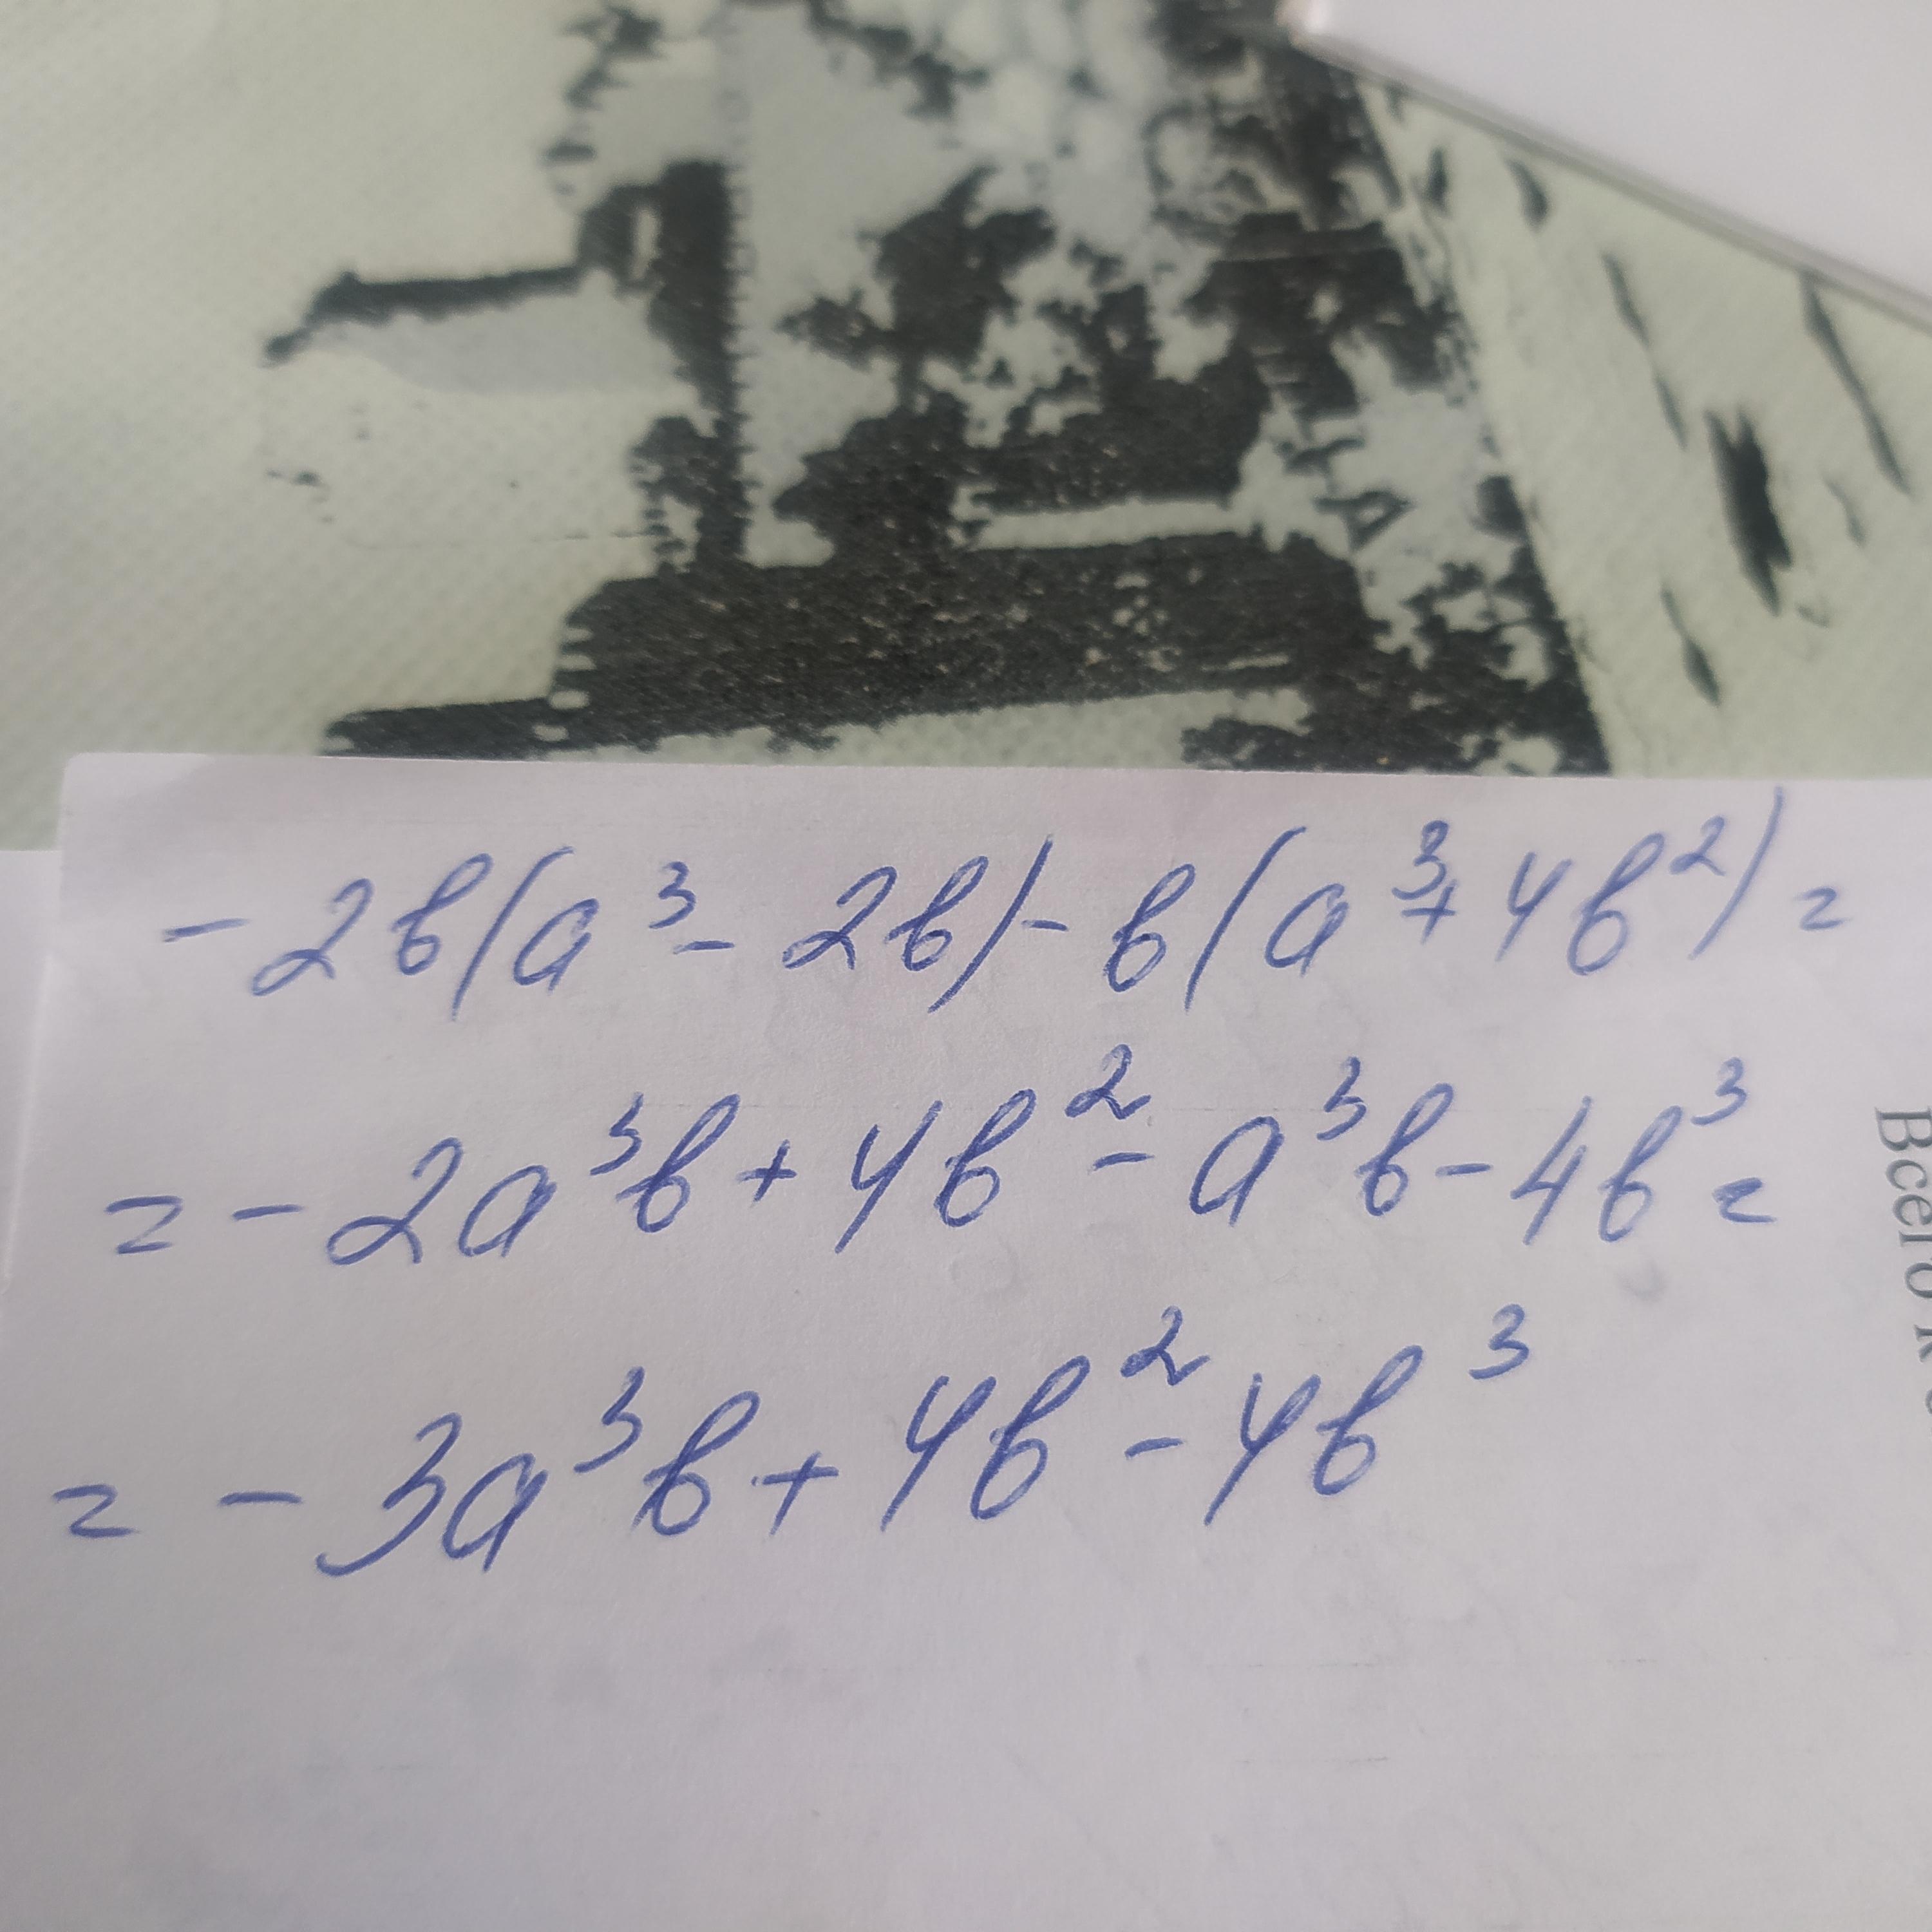 - 2b(a³ - 2b) - b(a³ + 4b²) =
= - 2a³b + 4b² - a³b - 4b³ =
= - 3a³b + 4b² - 4b³
Всего